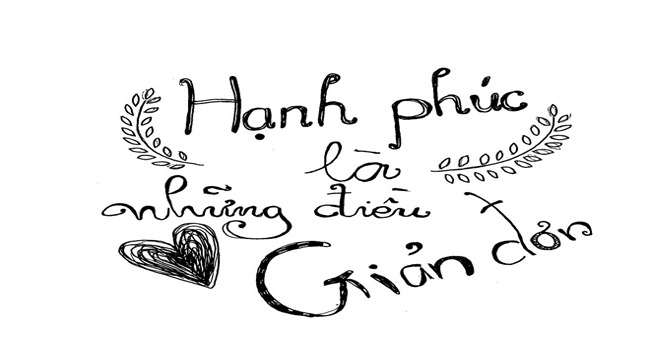 Hạnh phúc
là
những điều
Giản đơn